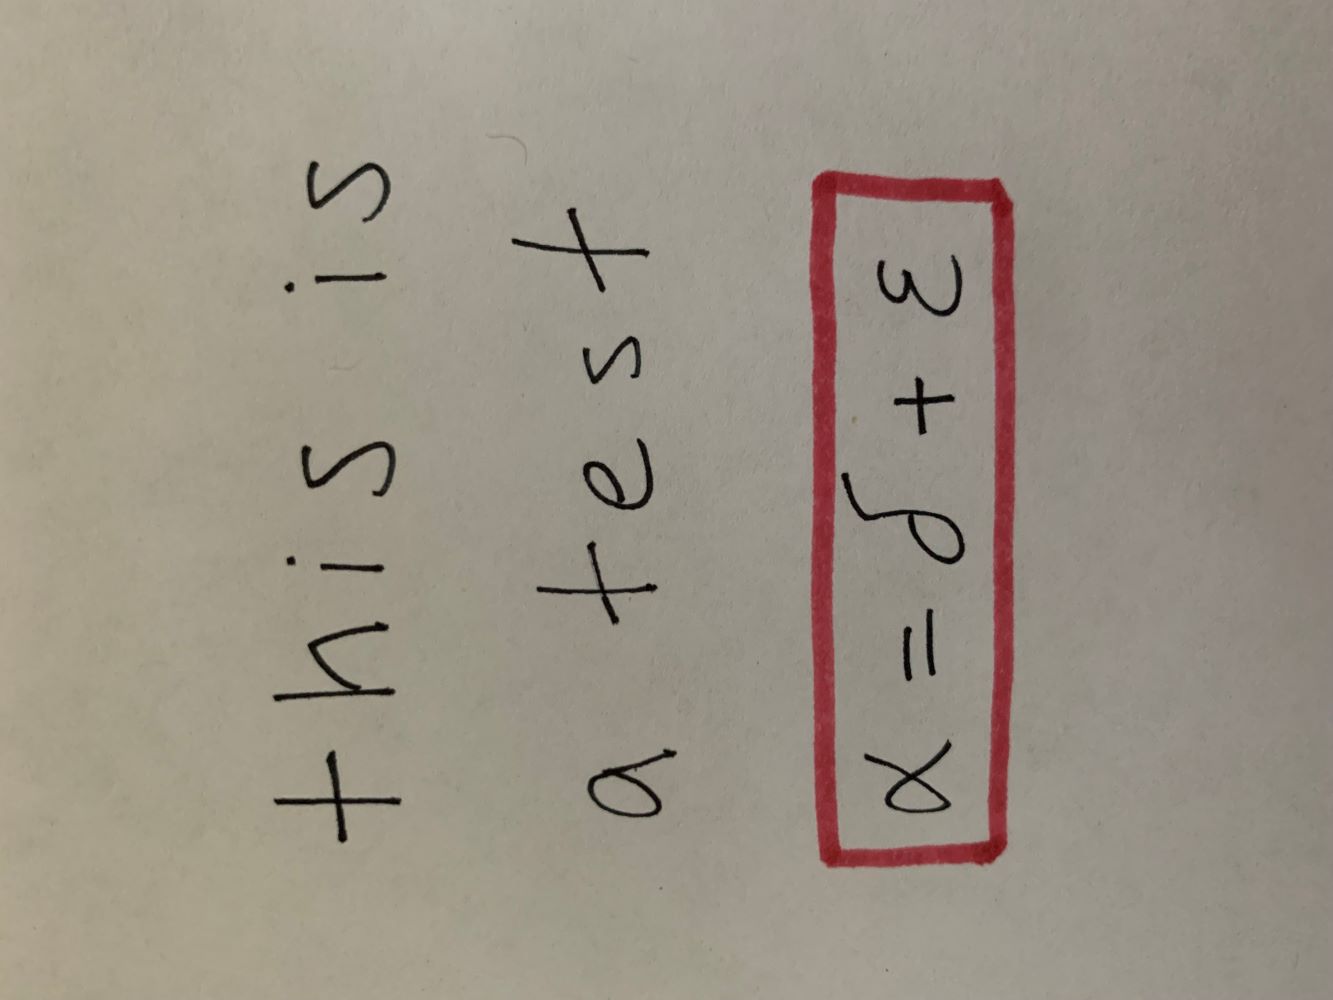 this is
a test
α = δ + ε